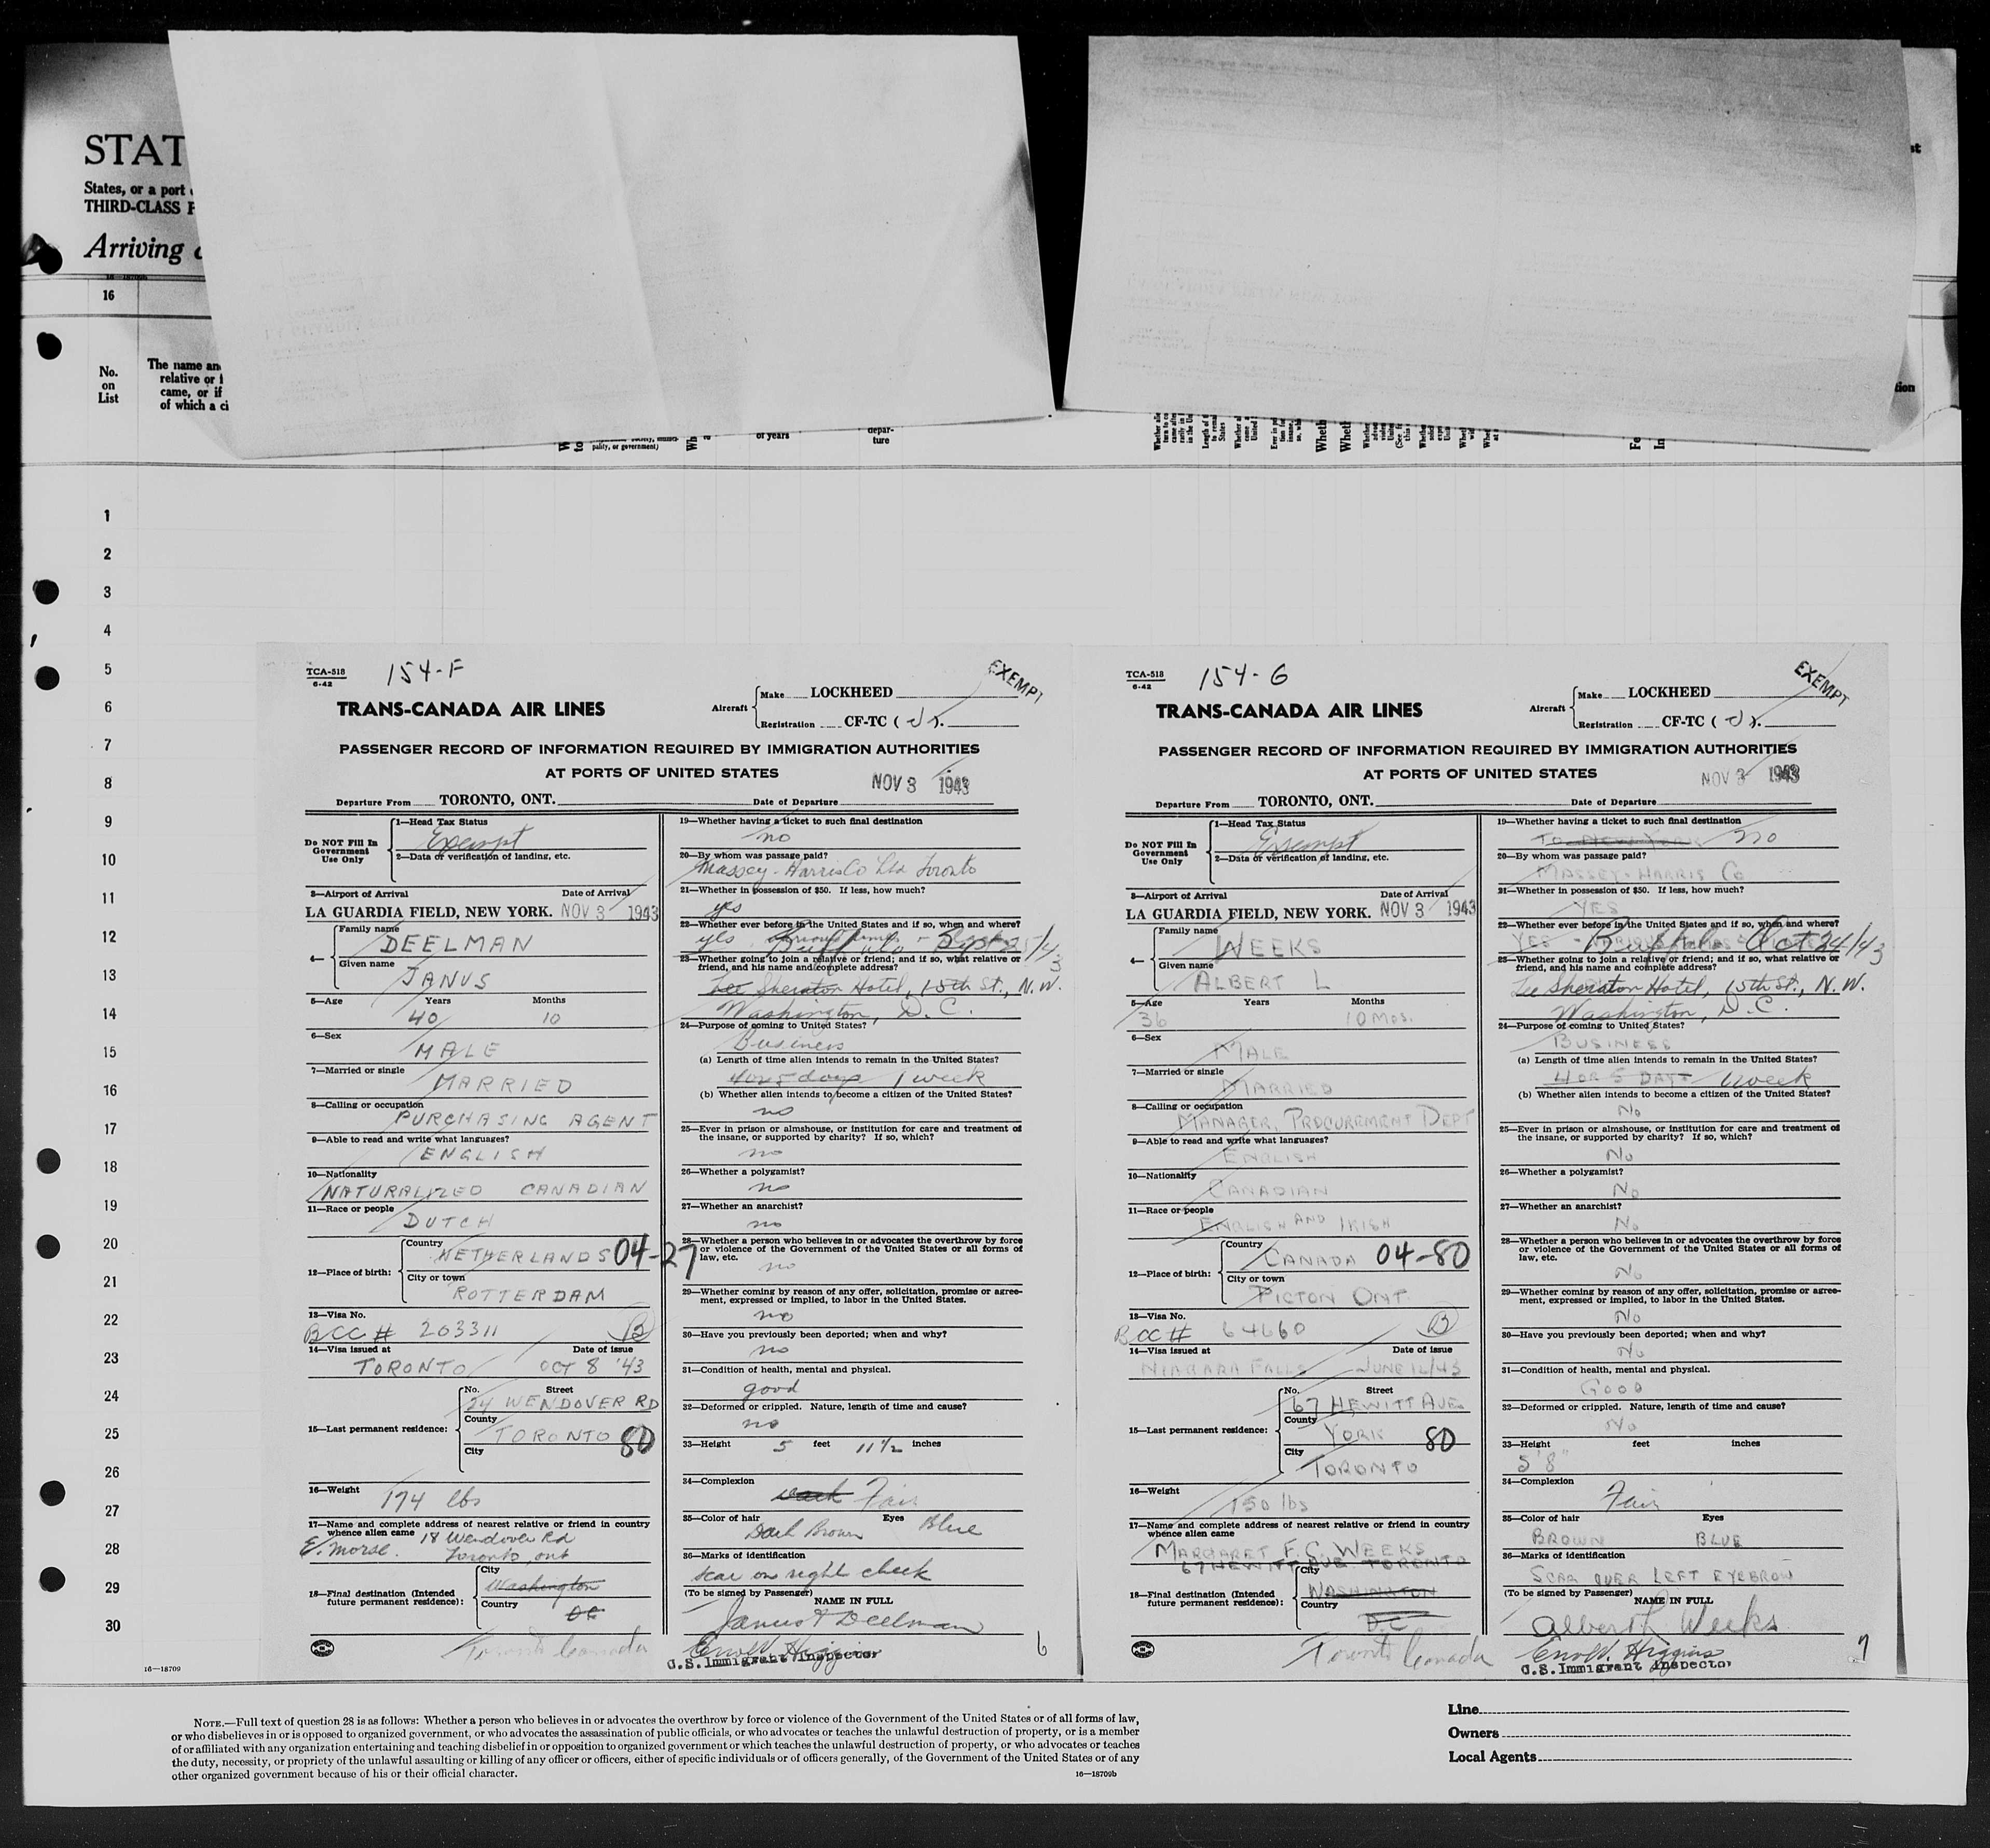 STAT
States, or a port
THIRD-CLASS P
Arriving
16
No.
on
List
The name an
relative or f
came, or if
of which a ci
pality, or government)
of years
depar-
ture
1
2
3
4
5
6
7
8
9
10
11
12
13
14
15
16
17
18
19
20
21
22
23
24
25
26
27
28
29
30
16—18709
TCA-518
6-42
154-F
EXEMPT
TRANS-CANADA AIR LINES
Aircraft
Make LOCKHEED
Registration CF-TC ( J ).
PASSENGER RECORD OF INFORMATION REQUIRED BY IMMIGRATION AUTHORITIES
AT PORTS OF UNITED STATES
NOV 3 1943
Departure From TORONTO, ONT. Date of Departure
Do NOT Fill In
Government
Use Only
1—Head Tax Status
Exempt
2—Data or verification of landing, etc.
3—Airport of Arrival Date of Arrival
LA GUARDIA FIELD, NEW YORK. NOV 3 1943
4—
Family name
DEELMAN
Given name
JANUS
5—Age Years Months
40 10
6—Sex
MALE
7—Married or single
MARRIED
8—Calling or occupation
PURCHASING AGENT
9—Able to read and write what languages?
ENGLISH
10—Nationality
NATURALIZED CANADIAN
11—Race or people
DUTCH
12—Place of birth:
Country
NETHERLANDS 04-27
City or town
ROTTERDAM
13—Visa No.
BCC # 203311 B
14—Visa issued at Date of issue
TORONTO OCT 8 '43
15—Last permanent residence:
No. Street
24 WENDOVER RD
County
TORONTO 80
City
16—Weight
174 lbs
17—Name and complete address of nearest relative or friend in country
whence alien came
E. Morse. 18 Wendover Rd
Toronto, ont
18—Final destination (Intended
future permanent residence):
City
Washington
Country
DC
Toronto Canada
19—Whether having a ticket to such final destination
no
20—By whom was passage paid?
Massey-Harris Co Ltd Toronto
21—Whether in possession of $50. If less, how much?
yes
22—Whether ever before in the United States and if so, when and where?
yes Buffalo - Sept 25/43
23—Whether going to join a relative or friend; and if so, what relative or
friend, and his name and complete address?
Lee Sheraton Hotel, 15th St., N.W.
Washington, D.C.
24—Purpose of coming to United States?
Business
(a) Length of time alien intends to remain in the United States?
4 or 5 days 1 week
(b) Whether alien intends to become a citizen of the United States?
no
25—Ever in prison or almshouse, or institution for care and treatment of
the insane, or supported by charity? If so, which?
no
26—Whether a polygamist?
no
27—Whether an anarchist?
no
28—Whether a person who believes in or advocates the overthrow by force
or violence of the Government of the United States or all forms of
law, etc.
no
29—Whether coming by reason of any offer, solicitation, promise or agree-
ment, expressed or implied, to labor in the United States.
no
30—Have you previously been deported; when and why?
no
31—Condition of health, mental and physical.
good
32—Deformed or crippled. Nature, length of time and cause?
no
33—Height 5 feet 11 1/2 inches
34—Complexion
Fair
35—Color of hair Eyes
Dark Brown Blue
36—Marks of identification
scar on right cheek
(To be signed by Passenger)
NAME IN FULL
Janus F Deelman
Eno W. Higgins
U.S. Immigrant Inspector
6
TCA-518
6-42
154-G
EXEMPT
TRANS-CANADA AIR LINES
Aircraft
Make LOCKHEED
Registration CF-TC ( J ).
PASSENGER RECORD OF INFORMATION REQUIRED BY IMMIGRATION AUTHORITIES
AT PORTS OF UNITED STATES
NOV 3 1943
Departure From TORONTO, ONT. Date of Departure
Do NOT Fill In
Government
Use Only
1—Head Tax Status
Exempt
2—Data or verification of landing, etc.
3—Airport of Arrival Date of Arrival
LA GUARDIA FIELD, NEW YORK. NOV 3 1943
4—
Family name
WEEKS
Given name
ALBERT L
5—Age Years Months
36 10 MOS.
6—Sex
MALE
7—Married or single
MARRIED
8—Calling or occupation
MANAGER, PROCUREMENT DEPT
9—Able to read and write what languages?
ENGLISH
10—Nationality
CANADIAN
11—Race or people
ENGLISH AND IRISH
12—Place of birth:
Country
CANADA 04-80
City or town
PICTON ONT.
13—Visa No.
BCC # 64660 B
14—Visa issued at Date of issue
NIAGARA FALLS JUNE 12/43
15—Last permanent residence:
No. Street
67 HEWITT AVE.
County
YORK 80
City
TORONTO
16—Weight
150 lbs
17—Name and complete address of nearest relative or friend in country
whence alien came
MARGARET F.C. WEEKS
67 HEWITT AVE TORONTO
18—Final destination (Intended
future permanent residence):
City
WASHINGTON
Country
D.C.
Toronto Canada
19—Whether having a ticket to such final destination
TO NEW YORK no
20—By whom was passage paid?
MASSEY-HARRIS CO
21—Whether in possession of $50. If less, how much?
YES
22—Whether ever before in the United States and if so, when and where?
YES - Buffalo Oct 24/43
23—Whether going to join a relative or friend; and if so, what relative or
friend, and his name and complete address?
Lee Sheraton Hotel, 15th St., N.W.
Washington, D.C.
24—Purpose of coming to United States?
BUSINESS
(a) Length of time alien intends to remain in the United States?
4 OR 5 DAYS 1 week
(b) Whether alien intends to become a citizen of the United States?
No
25—Ever in prison or almshouse, or institution for care and treatment of
the insane, or supported by charity? If so, which?
No
26—Whether a polygamist?
No
27—Whether an anarchist?
No
28—Whether a person who believes in or advocates the overthrow by force
or violence of the Government of the United States or all forms of
law, etc.
No
29—Whether coming by reason of any offer, solicitation, promise or agree-
ment, expressed or implied, to labor in the United States.
No
30—Have you previously been deported; when and why?
No
31—Condition of health, mental and physical.
GOOD
32—Deformed or crippled. Nature, length of time and cause?
No
33—Height feet inches
5'8"
34—Complexion
Fair
35—Color of hair Eyes
BROWN BLUE
36—Marks of identification
SCAR OVER LEFT EYEBROW
(To be signed by Passenger)
NAME IN FULL
Albert L Weeks
Eno W. Higgins
U.S. Immigrant Inspector
7
NOTE.—Full text of question 28 is as follows: Whether a person who believes in or advocates the overthrow by force or violence of the Government of the United States or of all forms of law,
or who disbelieves in or is opposed to organized government, or who advocates the assassination of public officials, or who advocates or teaches the unlawful destruction of property, or is a member
of or affiliated with any organization entertaining and teaching disbelief in or opposition to organized government or which teaches the unlawful destruction of property, or who advocates or teaches
the duty, necessity, or propriety of the unlawful assaulting or killing of any officer or officers, either of specific individuals or of officers generally, of the Government of the United States or of any
other organized government because of his or their official character.
16—18709b
Line
Owners
Local Agents